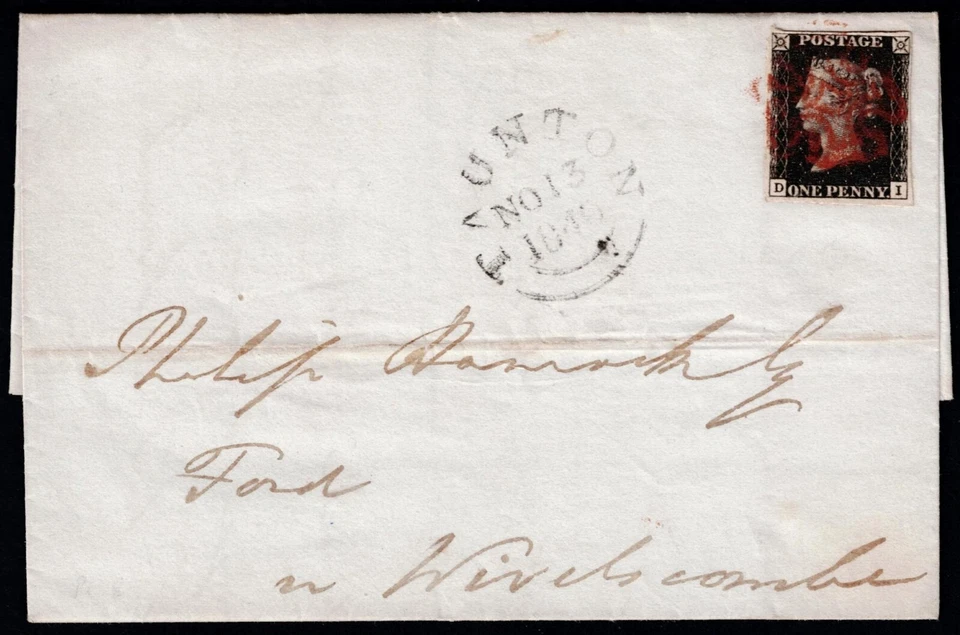 POSTAGE
D ONE PENNY. I
TAUNTON
NO 13
1840
Philip Hancock Esq
Ford
nr Wiveliscombe